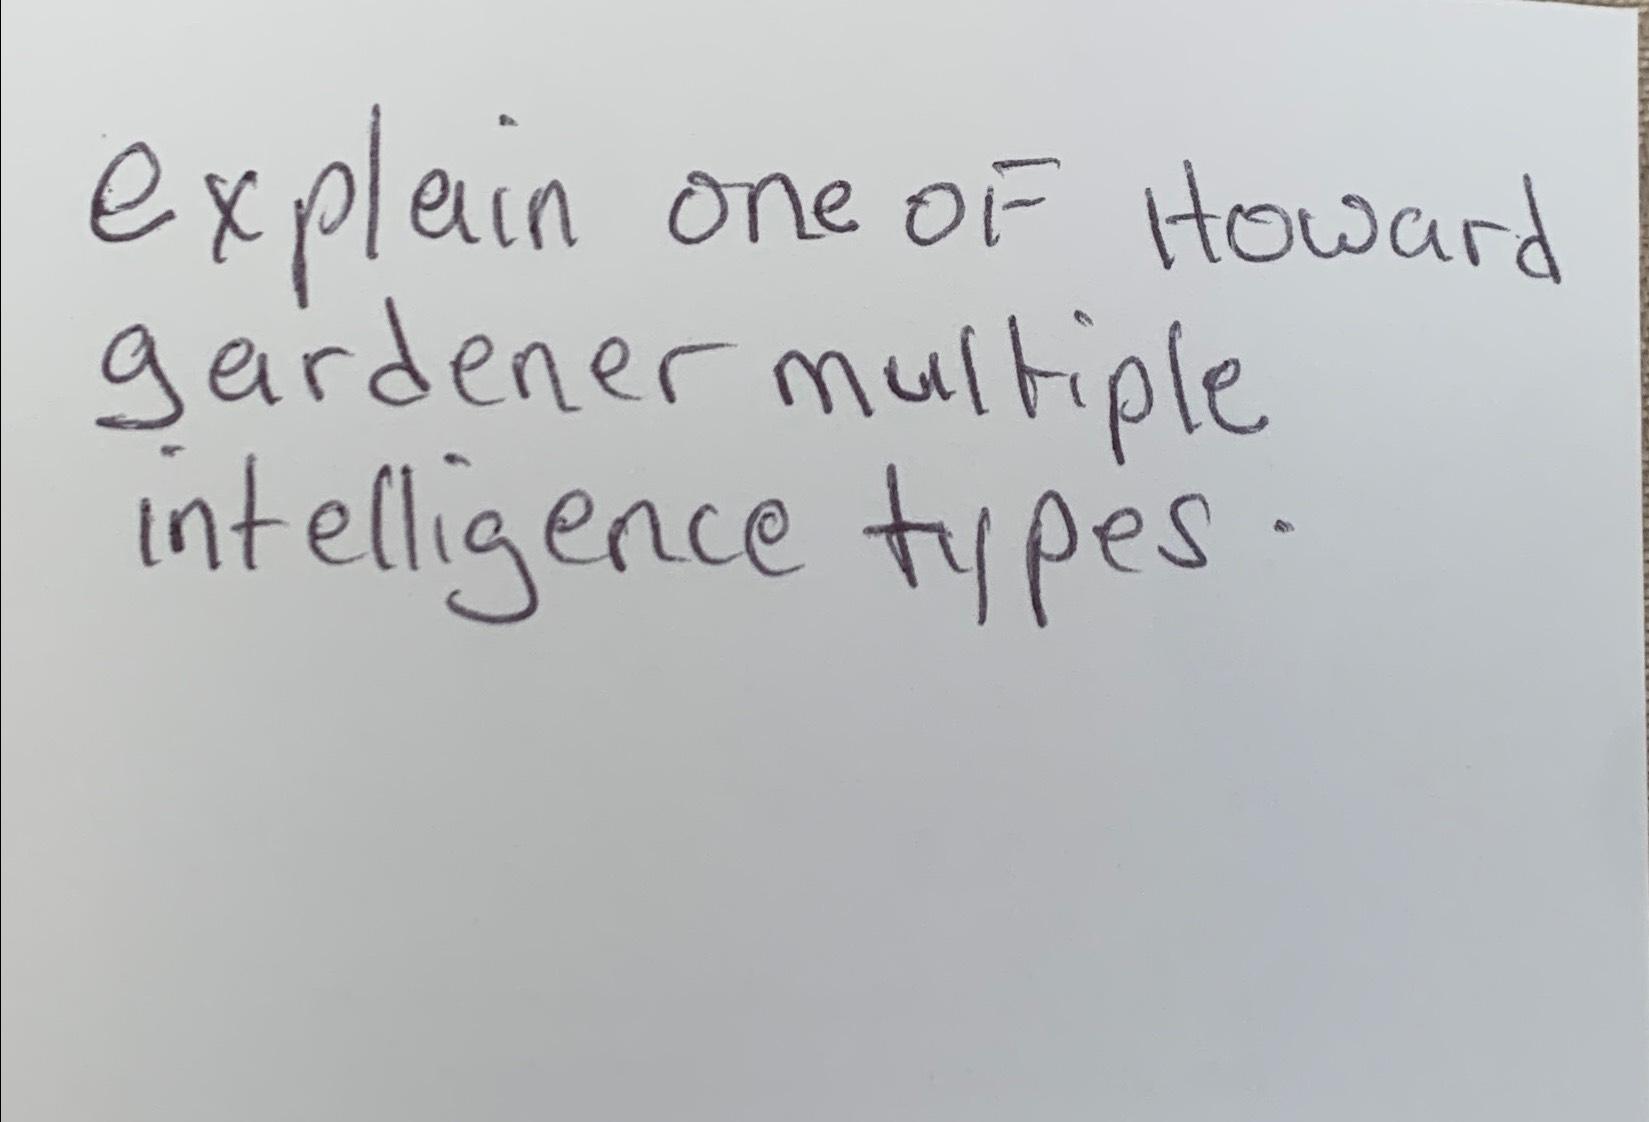 explain one of Howard
gardener multiple
intelligence types.